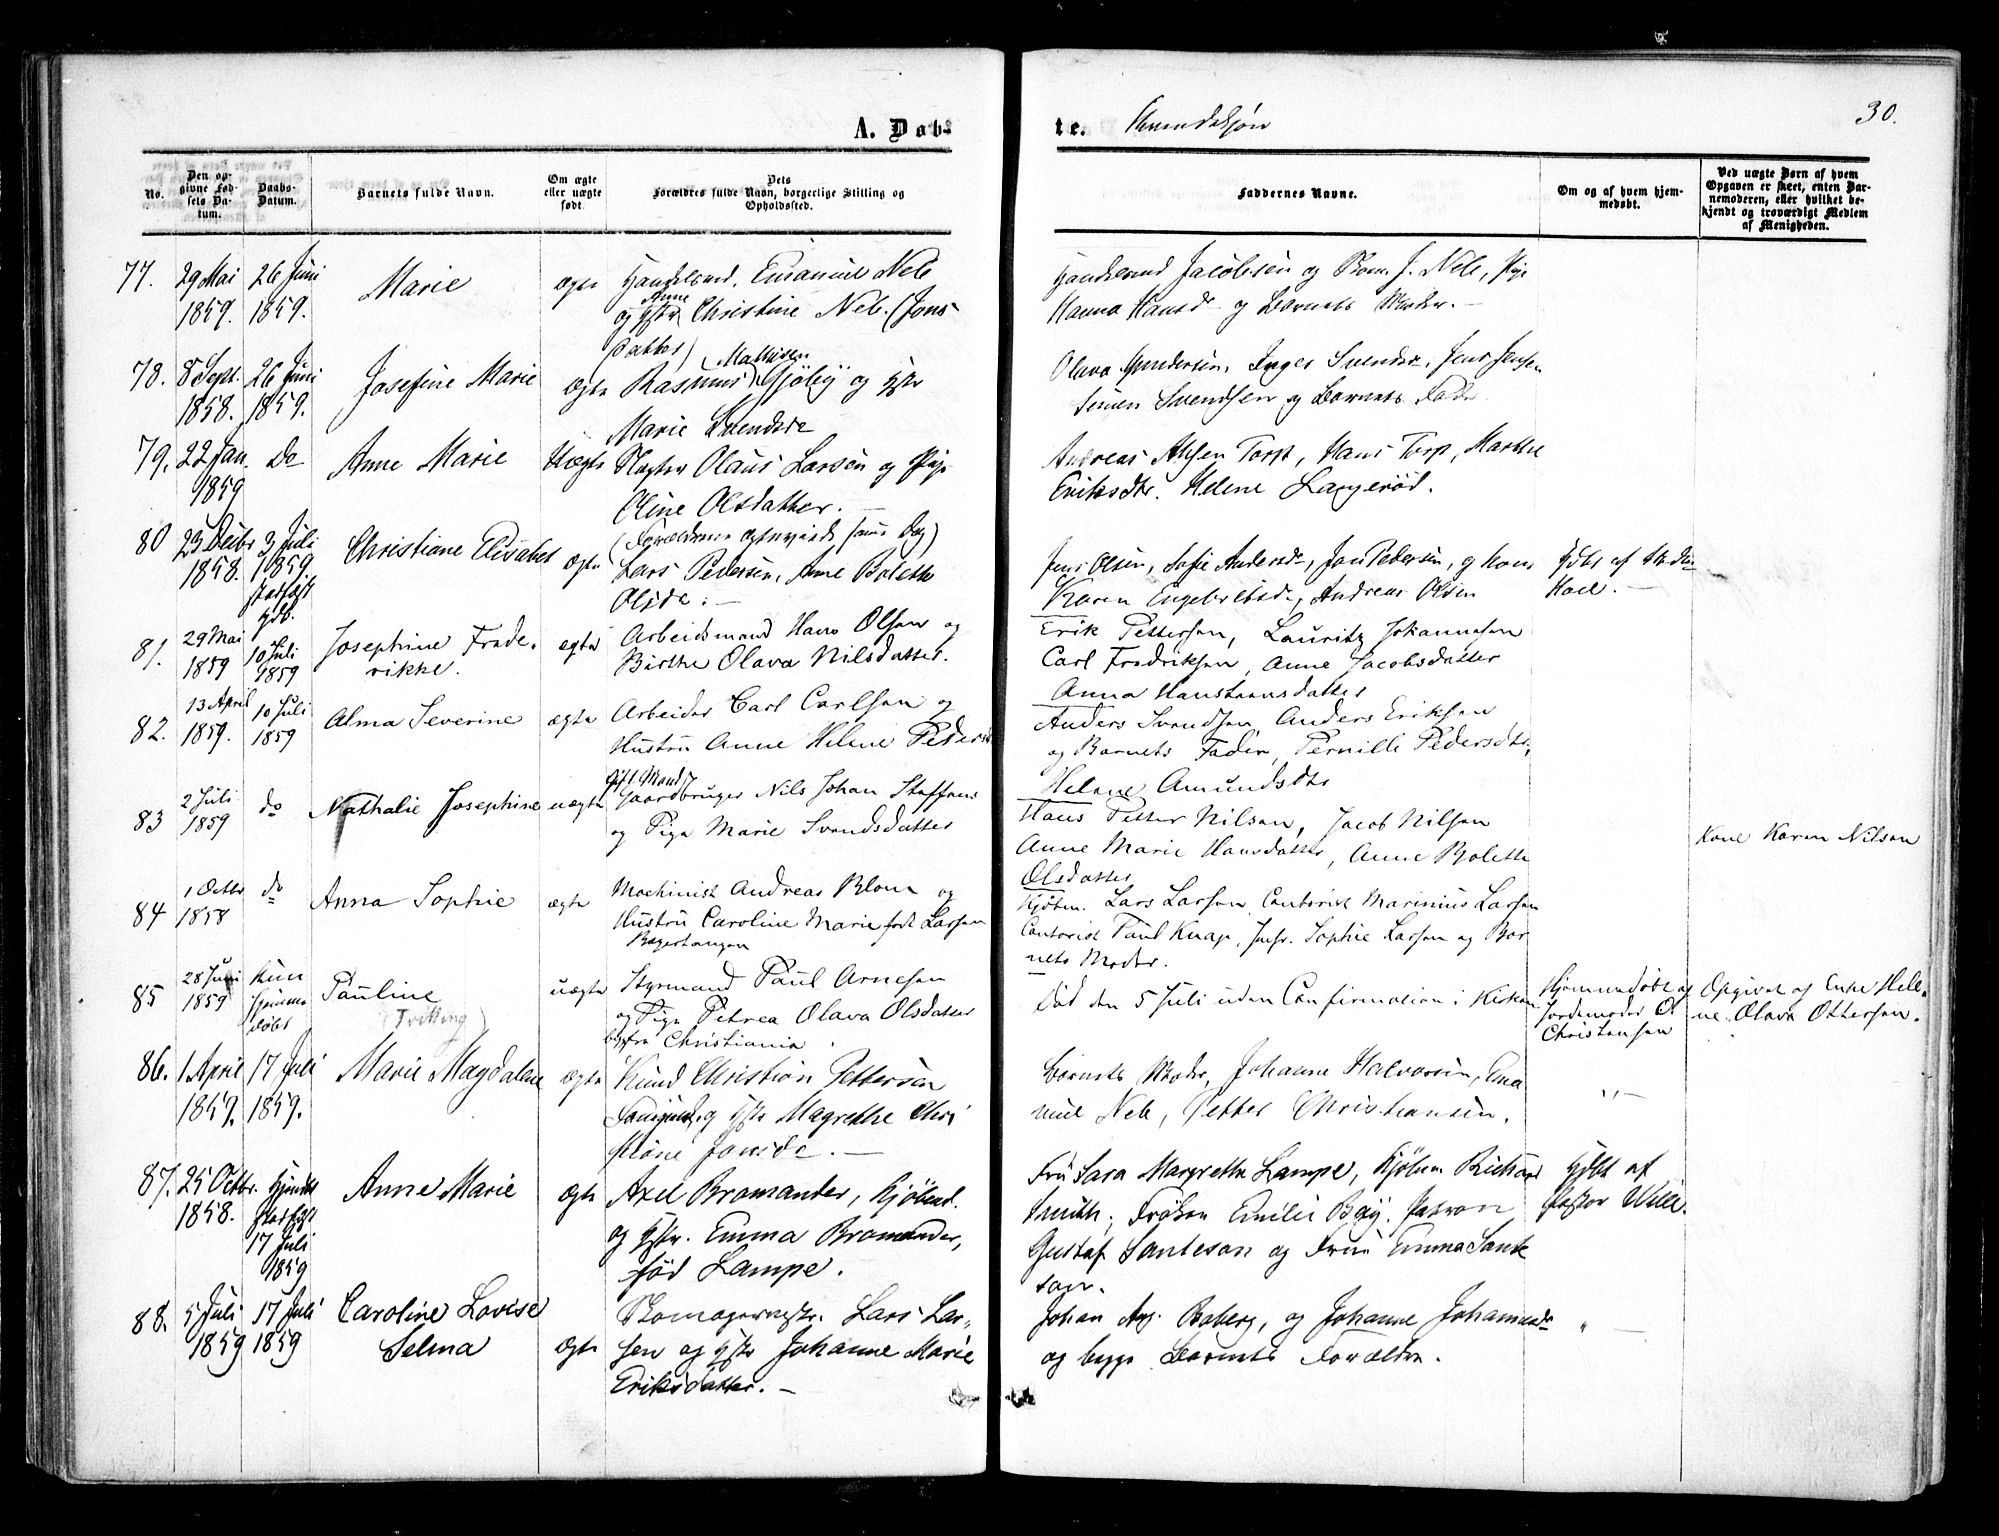 A. Døb-
te. Kvindekjøn
30.
No.
Den op-
givne Fød-
sels Da-
tum.
Daabs-
Datum.
Barnets fulde Navn.
Om ægte
eller uægte
født.
Dets
Forældres fulde Navn, borgerlige Stilling og
Opholdssted.
Faddernes Navne.
Om og af hvem hjem-
medøbt.
Ved uægte Børn af hvem
Opgaven er skeet, enten Bar-
nemoderen, eller hvilket be-
kjendt og troværdigt Medlem
af Menigheden.
77. 29 Mai 26 Juni
1859. 1859.
Marie
ægte
Handelsmd. Emanuel Neb
Anne
og Hstr Christine Neb. (Jons-
datter)
Handelsmd Jacobsen og J. Neb, Pige
Hanna Hansd og Barnets Moder. -
78. 8 Sept. 26 Juni
1858. 1859.
Josefine Marie
ægte
(Mathisen
Rasmus Gjöby og Hstr
Marie Svendsdr
Olava Gundersen, Inger Svendsdr, Jens Jensen
Simen Svendsen og Barnets Fader
79. 22 Jan. Do
1859
Anne Marie
Uægte
Slagter Olaus Larsen og Pige
Oline Olsdatter. -
Andreas Torp, Hans Torp, Marthe
Eriksdtr. Helene Langeröd.
80 23 Decbr 3 Juli
1858. 1859.
stadfæst
hdb.
Christiane Elisabet
ægte
(Forældrene ægteviede samme Dag)
Lars Pedersen, Anne Bolette
Olsdr. -
Jens Olsen, Sofie Andersdr, Jon Pedersen, og Kone
Karen Engebretsdr, Andreas Olsen
hdbt af
Hoel. -
81. 29 Mai 10 Juli
1859 1859
Josephine Frede-
rikke.
ægte
Arbeidsmand Hans Olsen og
Birthe Olava Nilsdatter.
Erik Pettersen, Lauritz Johannesen
Carl Fredriksen, Anne Jacobsdatter
Anna Hansteensdatter
82. 13 April 10 Juli
1859. 1859
Alma Severine
ægte
Arbeider Carl Carlsen og
Hustru Anne Helene Pedersd
Anders Svendsen, Anders Eriksen
og Barnets Fader, Pernille Pedersdtr,
Helene Amundsdtr
83 2 Juli do
1859
Nathalie Josephine
uægte
gift Mand
Gaardbruger Nils Johan Staffens
og Pige Marie Svendsdatter
Hans Petter Nilsen, Jacob Nilsen
Anne Marie Hansdatter, Anne Bolette
Olsdatter
Kone Karen Nilsen
84 1 Octbr do
1858
Anna Sophie
ægte
Machinist Andreas Blom og
Hustru Caroline Marie født Larsen
Bagertangen
Kjöbm. Lars Larsen, Contorist Marinius Larsen
Contorist Paul Knap, Jnfr. Sophie Larsen og Bar
nets Moder.
85 28 Juni Kun
1859 hjemme
döbt
Pauline
(Tvilling)
uægte
Styrmand Paul Arnesen
og Pige Petrea Olava Olsdatter
begge fra Christiania.
Död den 5 Juli uden Confirmation i Kirken
Hjemmedöbt af
Jordemoder O.
Christensen
Opgivet af Enke Hele-
ne Olava Ottersen.
86. 1 April 17 Juli
1859. 1859.
Marie Magdalene
ægte
Knud Christian Pettersen
og Hstr Magrethe Chri
stiane Jonsdr. -
Barnets Moder, Johanne Halvorsen, Ema
nuel Neb, Petter Christiansen.
" -
87. 25 Octbr. hjmdbt
1858. stadfæst
17 Juli
1859
Anne Marie
ægte
Axel Bromander, Kjöbmd.
og Hstr. Emma Bromander,
född Lampe.
Fru Sara Margrethe Lampe, Kjöbm Richard
Smith, Fröken Emilie Bay. Patron
Gustaf Santeson og Fru Emma Sante
son.
hjdbt af
Pastor Wille.
88. 5 Juli 17 Juli
1859 1859
Caroline Lovise
Selma
ægte
Skomagermstr. Lars Lar-
sen og Hstr Johanne Marie
Eriksdatter. -
Johan Aug. Boberg, og Johanne Johannesdr
og begge Barnets Forældre.
" -